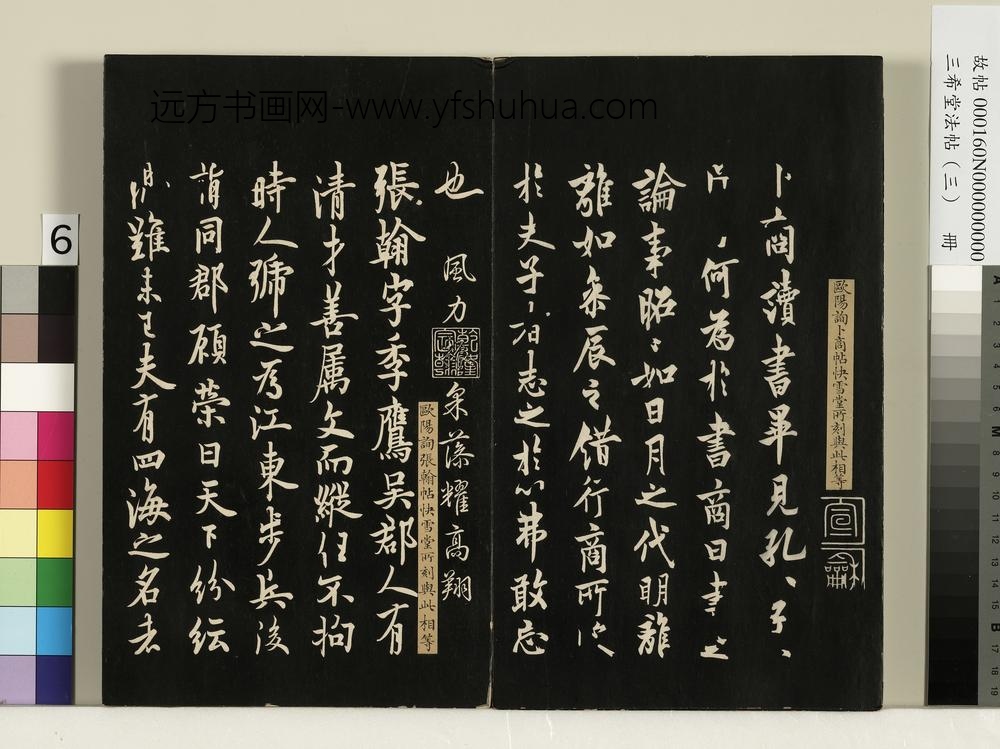 故帖 000160N000000000
三希堂法帖(三) 冊
歐陽詢卜商帖快雪堂所刻與此相等
宣
龢
卜商讀書畢見孔〻子〻
何為於書商曰書之
論事昭〻如日月之代明離
離如參辰之錯行商所
於夫子〻志之於心弗敢忘
也 風力
乾隆宸翰
采藻耀高翔
歐陽詢張翰帖快雪堂所刻與此相等
張翰字季鷹吳郡人有
清才善属文而縱任不拘
時人號之為江東步兵後
謂同郡顧榮曰天下紛紜
難未已夫有四海之名者
远方书画网-www.yfshuhua.com
6